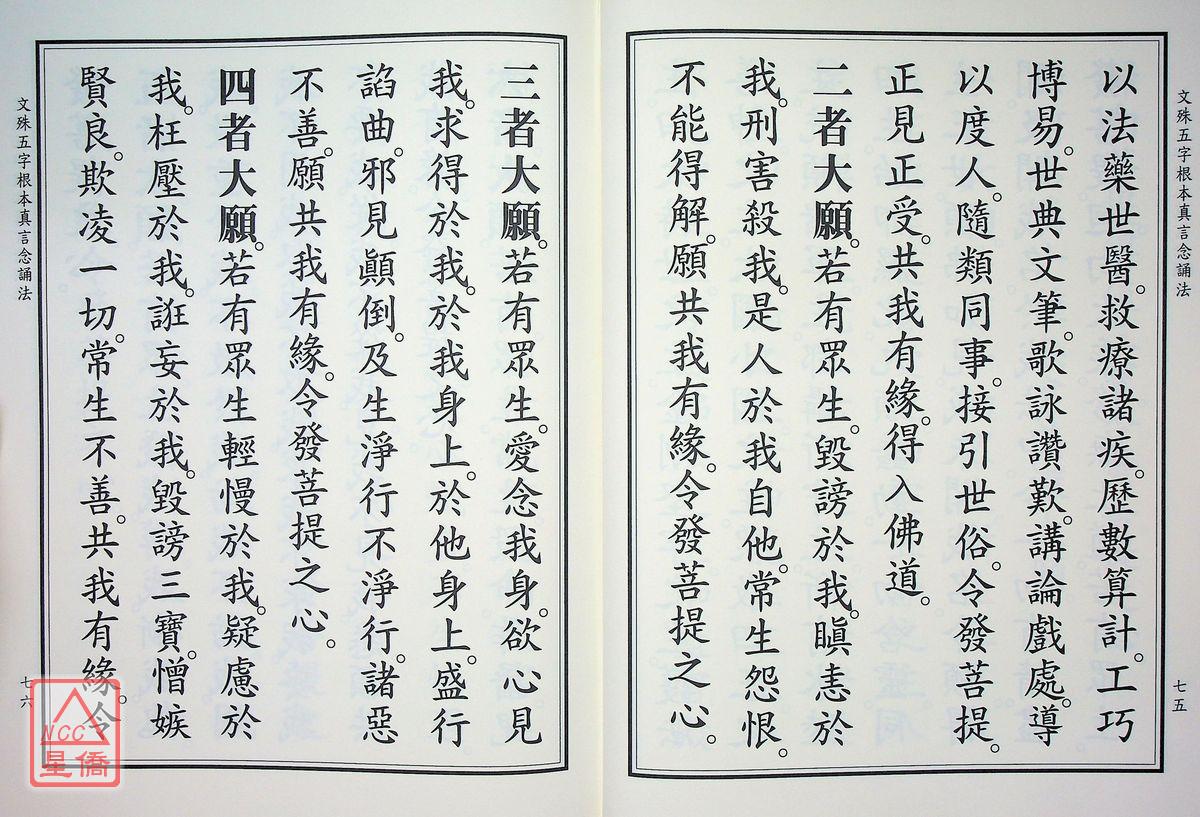 文殊五字根本真言念誦法
七五
以法藥世醫。救療諸疾。歷數算計。工巧
博易。世典文筆。歌詠讚歎。講論戲處。導
以度人。隨類同事。接引世俗。令發菩提。
正見正受。共我有緣。得入佛道。
二者大願。若有眾生。毀謗於我。瞋恚於
我。刑害殺我。是人於我自他。常生怨恨。
不能得解。願共我有緣。令發菩提之心。
三者大願。若有眾生。愛念我身。欲心見
我。求得於我。於我身上。於他身上。盛行
諂曲。邪見顚倒。及生淨行不淨行。諸惡
不善。願共我有緣。令發菩提之心。
四者大願。若有眾生輕慢於我。疑慮於
我。枉壓於我。誑妄於我。毀謗三寶。憎嫉
賢良。欺凌一切。常生不善。共我有緣。令
文殊五字根本真言念誦法
七六
NCC
星僑